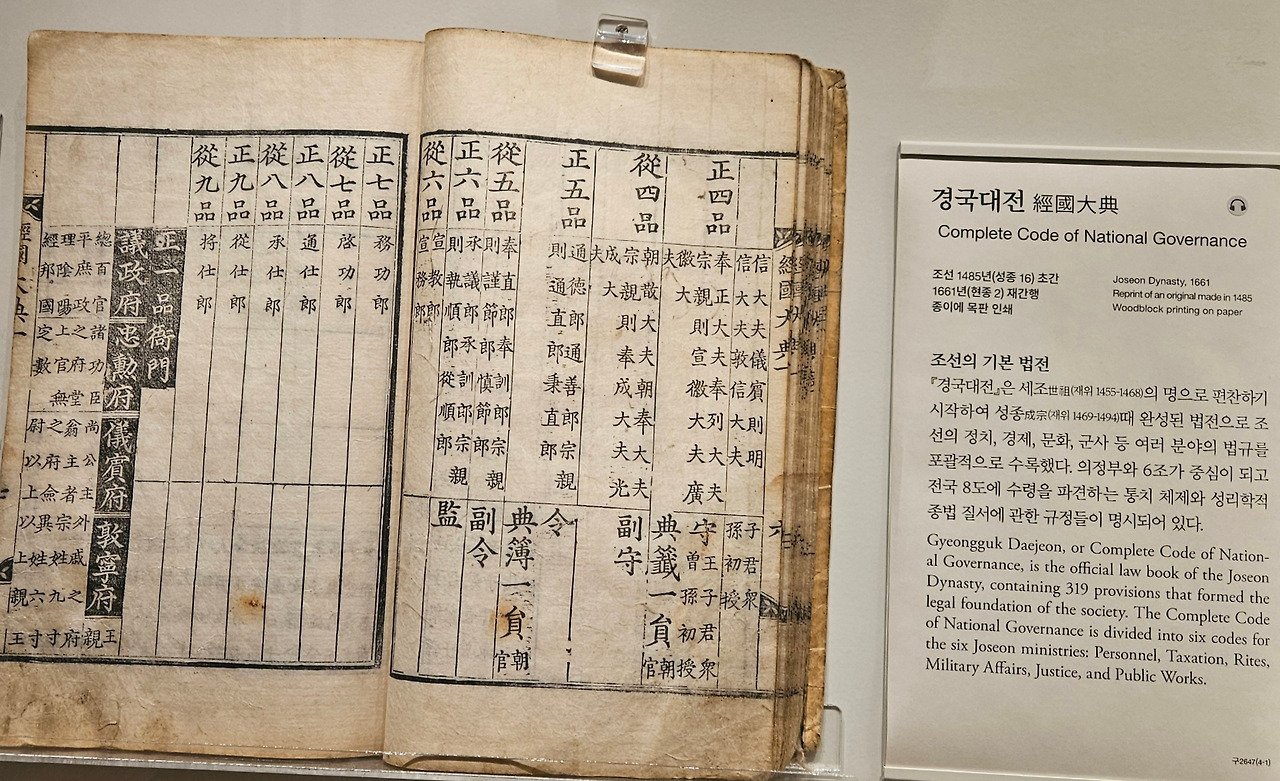 經國大典一
六
信大夫儀賓則明
信大夫敦信大夫
子君衆
孫初授
正四品
奉正大夫奉列大夫
宗親則宣徽大夫廣
徽大夫
守
王子君衆
曾孫初授
典籤一員
朝官
從四品
朝散大夫朝奉大夫
宗親則奉成大夫光
成大夫
副守
正五品
通德郎通善郎宗親
則通直郎秉直郎
令
典簿一員
朝官
從五品
奉直郎奉訓郎宗親
則謹節郎愼節郎
副令
正六品
承議郎承訓郎宗親
則執順郎從順郎
監
從六品
宣教郎
宣務郎
正七品 務功郎
從七品 啓功郎
正八品 通仕郎
從八品 承仕郎
正九品 從仕郎
從九品 將仕郎
正一品衙門
議政府
總百官
平庶政
理陰陽
經邦國
忠勳府
諸功臣
之府堂
上官無
定數
儀賓府
尚公主
翁主者
之府
尉以上
敦寧府
王親
外戚之府
宗姓九寸
異姓六寸
以上親
王
經國大典一
경국대전 經國大典
Complete Code of National Governance
조선 1485년(성종 16) 초간
1661년(현종 2) 재간행
종이에 목판 인쇄
Joseon Dynasty, 1661
Reprint of an original made in 1485
Woodblock printing on paper
조선의 기본 법전
『경국대전』은 세조世祖(재위 1455-1468)의 명으로 편찬하기
시작하여 성종成宗(재위 1469-1494)때 완성된 법전으로 조
선의 정치, 경제, 문화, 군사 등 여러 분야의 법규를
포괄적으로 수록했다. 의정부와 6조가 중심이 되고
전국 8도에 수령을 파견하는 통치 체제와 성리학적
종법 질서에 관한 규정들이 명시되어 있다.
Gyeongguk Daejeon, or Complete Code of Nation-
al Governance, is the official law book of the Joseon
Dynasty, containing 319 provisions that formed the
legal foundation of the society. The Complete Code
of National Governance is divided into six codes for
the six Joseon ministries: Personnel, Taxation, Rites,
Military Affairs, Justice, and Public Works.
구2647(4-1)